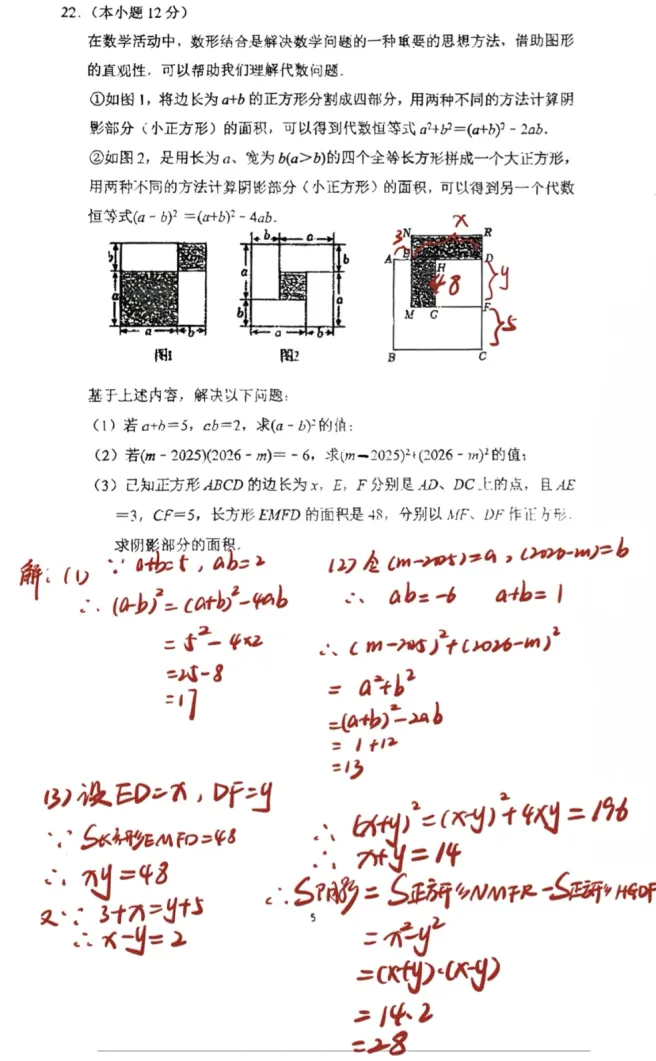 22.（本小题12分）
在数学活动中，数形结合是解决数学问题的一种重要的思想方法，借助图形
的直观性，可以帮助我们理解代数问题．
①如图1，将边长为a+b的正方形分割成四部分，用两种不同的方法计算阴
影部分（小正方形）的面积，可以得到代数恒等式a²+b²=(a+b)²－2ab．
②如图2，是用长为a、宽为b(a>b)的四个全等长方形拼成一个大正方形，
用两种不同的方法计算阴影部分（小正方形）的面积，可以得到另一个代数
恒等式(a－b)²=(a+b)²－4ab．
b a a b
图1
b a a b b a a b
图2
N R A E D H M G F B C
3 x y 48 5
基于上述内容，解决以下问题：
（1）若a+b=5，ab=2，求(a－b)²的值；
（2）若(m－2025)(2026－m)=－6，求(m－2025)²+(2026－m)²的值；
（3）已知正方形ABCD的边长为x，E，F分别是AD、DC上的点，且AE
=3，CF=5，长方形EMFD的面积是48，分别以MF、DF作正方形．
求阴影部分的面积．
解：(1) ∵ a+b=5，ab=2
∴ (a-b)²=(a+b)²-4ab
=5²-4×2
=25-8
=17
(2) 令(m-2025)=a，(2026-m)=b
∴ ab=-6 a+b=1
∴ (m-2025)²+(2026-m)²
=a²+b²
=(a+b)²-2ab
=1+12
=13
(3) 设ED=x，DF=y
∵ S长方形EMFD=48
∴ xy=48
又∵ 3+x=y+5
∴ x-y=2
∴ (x+y)²=(x-y)²+4xy=196
∴ x+y=14
∴ S阴影=S正方形NMFR-S正方形HGDF
=x²-y²
=(x+y)·(x-y)
=14·2
=28
5